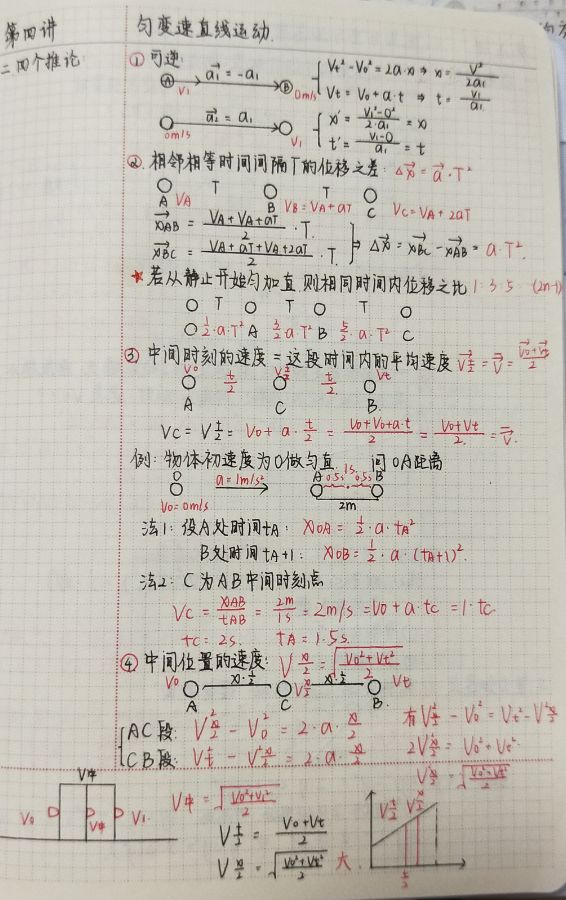 第四讲 匀变速直线运动
二.四个推论
① 可逆
A a₁ = -a₁ B
V₁ 0m/s
Vt² - V0² = 2a·x ⇒ x = V²/2a₁
Vt = V0 + a·t ⇒ t = V₁/a₁
a₂ = a₁
0m/s V₁
x' = (V₁²-0²)/(2·a₁) = x
t' = (V₁-0)/a₁ = t
② 相邻相等时间间隔T的位移之差: Δx = a·T²
T T
A VA B VB = VA + aT C VC = VA + 2aT
xAB = (VA + VA + aT)/2 · T
xBC = (VA + aT + VA + 2aT)/2 · T
} ⇒ Δx = xBC - xAB = a·T².
★ 若从静止开始匀加直,则相同时间内位移之比 1:3:5…(2n-1)
T T T
O ½·a·T² A 3/2·a·T² B 5/2·a·T² C
③ 中间时刻的速度 = 这段时间内的平均速度 V t/2 = V = (V0+Vt)/2
V0 t/2 V t/2 t/2 Vt
A C B
VC = V t/2 = V0 + a·t/2 = (V0+V0+a·t)/2 = (V0+Vt)/2 = V.
例: 物体初速度为0做匀直 问OA距离
O a = 1m/s² A 0.5s 1s 0.5s B
V0 = 0m/s 2m
法1: 设A处时间tA: xOA = ½·a·tA²
B处时间tA+1: xOB = ½·a·(tA+1)²
法2: C为AB中间时刻点
VC = xAB/tAB = 2m/1s = 2m/s = V0 + a·tC = 1·tC
tC = 2s. tA = 1.5s.
④ 中间位置的速度: V x/2 = √((V0²+Vt²)/2)
V0 x·½ V x/2 x·½ Vt
A C B
AC段: V²x/2 - V0² = 2·a·x/2
CB段: Vt² - V²x/2 = 2·a·x/2
有V²x/2 - V0² = Vt² - V²x/2
2V²x/2 = V0² + Vt²
V x/2 = √((V0²+Vt²)/2)
V中
V0 V中 V₁
V中 = √((V0²+V₁²)/2)
V t/2 = (V0+Vt)/2
V x/2 = √((V0²+Vt²)/2) 大
V t/2 V x/2
t/2